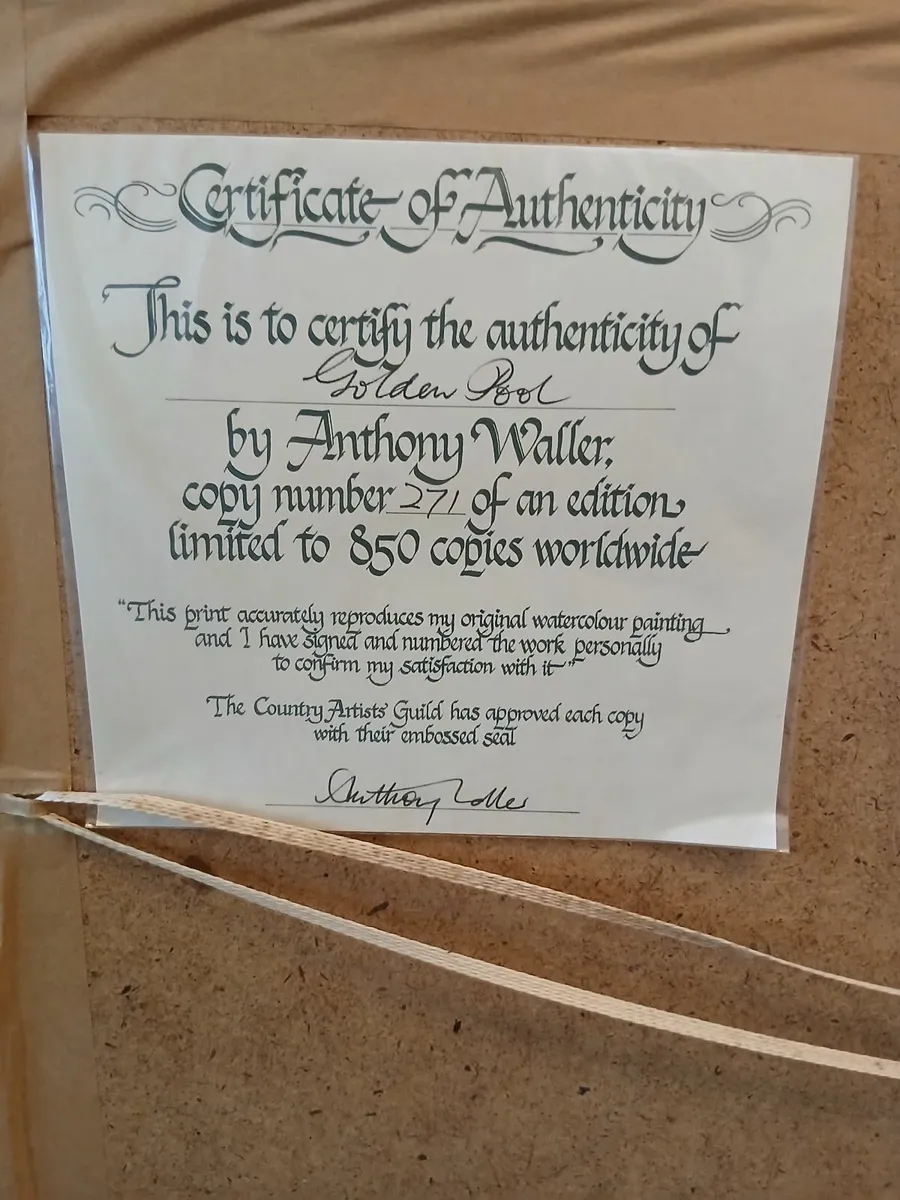 Certificate of Authenticity
This is to certify the authenticity of
Golden Pool
by Anthony Waller,
copy number 271 of an edition
limited to 850 copies worldwide
"This print accurately reproduces my original watercolour painting
and I have signed and numbered the work personally
to confirm my satisfaction with it"
The Country Artists' Guild has approved each copy
with their embossed seal
Anthony Waller